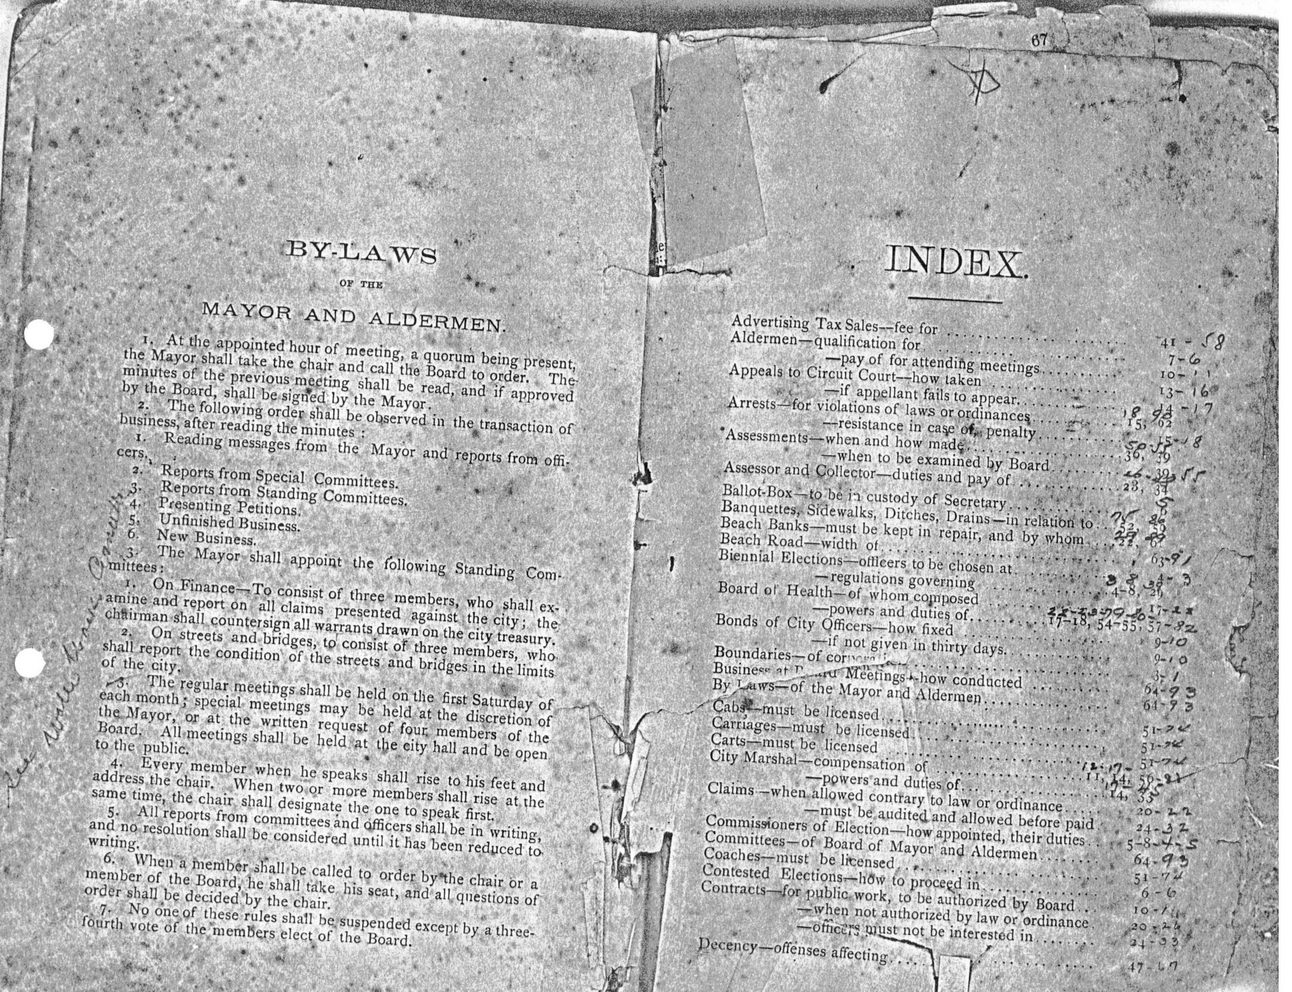 BY-LAWS
OF THE
MAYOR AND ALDERMEN.
1. At the appointed hour of meeting, a quorum being present,
the Mayor shall take the chair and call the Board to order. The
minutes of the previous meeting shall be read, and if approved
by the Board, shall be signed by the Mayor.
2. The following order shall be observed in the transaction of
business, after reading the minutes :
1. Reading messages from the Mayor and reports from offi-
cers.
2. Reports from Special Committees.
3. Reports from Standing Committees.
4. Presenting Petitions.
5. Unfinished Business.
6. New Business.
3. The Mayor shall appoint the following Standing Com-
mittees :
1. On Finance—To consist of three members, who shall ex-
amine and report on all claims presented against the city ; the
chairman shall countersign all warrants drawn on the city treasury.
2. On streets and bridges, to consist of three members, who
shall report the condition of the streets and bridges in the limits
of the city.
3. The regular meetings shall be held on the first Saturday of
each month ; special meetings may be held at the discretion of
the Mayor, or at the written request of four members of the
Board. All meetings shall be held at the city hall and be open
to the public.
4. Every member when he speaks shall rise to his feet and
address the chair. When two or more members shall rise at the
same time, the chair shall designate the one to speak first.
5. All reports from committees and officers shall be in writing,
and no resolution shall be considered until it has been reduced to
writing.
6. When a member shall be called to order by the chair or a
member of the Board, he shall take his seat, and all questions of
order shall be decided by the chair.
7. No one of these rules shall be suspended except by a three-
fourth vote of the members elect of the Board.
67
INDEX.
Advertising Tax Sales—fee for 41-58
Aldermen—qualification for 7-6
—pay of for attending meetings 10-11
Appeals to Circuit Court—how taken 13-16
—if appellant fails to appear. -17
Arrests—for violations of laws or ordinances 15, 62
—resistance in case of, penalty 18
Assessments—when and how made 36, 39
—when to be examined by Board 39-55
Assessor and Collector—duties and pay of 28, 34
Ballot-Box—to be in custody of Secretary
Banquettes, Sidewalks, Ditches, Drains—in relation to
Beach Banks—must be kept in repair, and by whom
Beach Road—width of 63-91
Biennial Elections—officers to be chosen at
—regulations governing 4-8
Board of Health—of whom composed 17-22
—powers and duties of 17-18, 54-55, 57-82
Bonds of City Officers—how fixed 9-10
—if not given in thirty days. 9-10
Boundaries—of 3-1
Business at Meetings—how conducted 64-93
By Laws—of the Mayor and Aldermen 64-93
Cabs—must be licensed 51-74
Carriages—must be licensed 51-74
Carts—must be licensed 51-74
City Marshal—compensation of 11, 14
—powers and duties of 14, 55
Claims—when allowed contrary to law or ordinance 20-22
—must be audited and allowed before paid 24-32
Commissioners of Election—how appointed, their duties 5-8-4-5
Committees—of Board of Mayor and Aldermen 64-93
Coaches—must be licensed 51-74
Contested Elections—how to proceed in 6-6
Contracts—for public work, to be authorized by Board 10-
—when not authorized by law or ordinance 20-24
—officers must not be interested in 24-33
Decency—offenses affecting 47-67